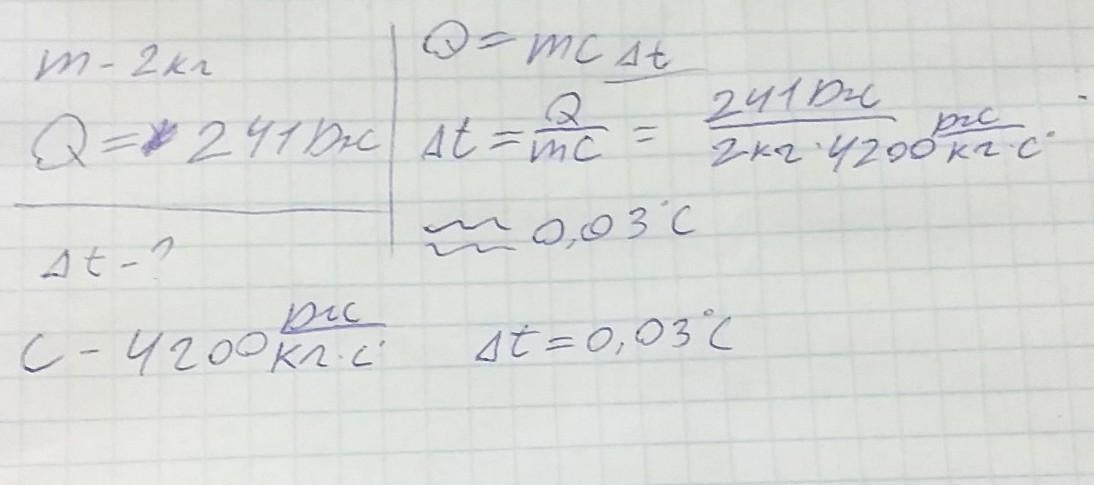 m - 2кг
Q = 241 Дж
Δt - ?
c - 4200 Дж/кг·c°
Q = mcΔt
Δt = Q/mc = 241 Дж/2кг·4200 Дж/кг·c°
≈ 0,03°C
Δt = 0,03°C